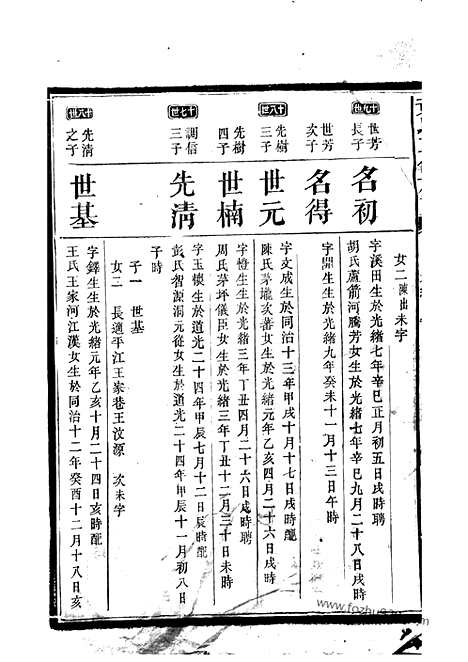 女二陳出未字
十九世
世芳長子
名初
字溪田生於光緒七年辛巳正月初五日戌時聘
胡氏蘆箭河騰芳女生於光緒七年辛巳九月二十八日戌時
世芳次子
名得
字開生生於光緒九年癸未十一月十三日午時
十八世
先樹三子
世元
字文成生於同治十三年甲戌十月十七日戌時配
陳氏茅壠友善女生於光緒元年乙亥四月二十六日戌時
先樹四子
世楠
字燈生生於光緒三年丁丑四月二十六日戌時聘
周氏茅坪儀臣女生於光緒三年丁丑十二月三十日未時
十七世
調信三子
先清
字玉懷生於道光二十四年甲辰七月十二日辰時配
彭氏智源洞元從女生於道光二十四年甲辰十一月初八日
子時
子一 世基
女二 長適平江王家巷王汶源 次未字
十八世
先清之子
世基
字鐸生生於光緒元年乙亥十月二十四日亥時配
王氏王家河江漢女生於同治十二年癸酉十二月十八日亥
www.fozhu920.com